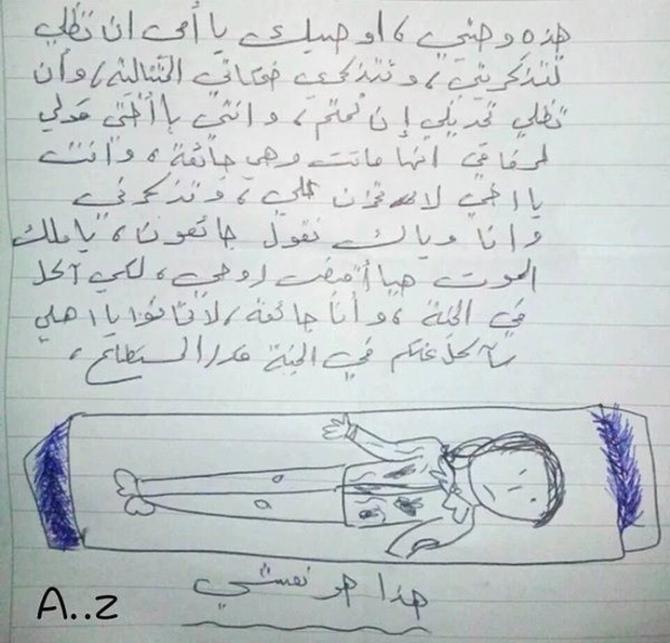 هذه وصيتي، اوصيك يا أمي ان تظلي
تتذكريني، وتتذكري ضحكاتي التتالية، وأن
تظلي تحديقي إن نمتم، وانتي يا أختي قولي
لرفاقي انها ماتت وهي جائعة، وانت
يا اخي لا تحزن علي، وتذكرني
وانا وياك نقول جائعون، يا ملك
الموت هيا أقبض روحي، لكي آكل
في الجنة، وأنا جائعة، لا تخافوا يا اهلي
سآكل عنكم في الجنة قدر المستطاع،
هذا هو نعشي
A..z